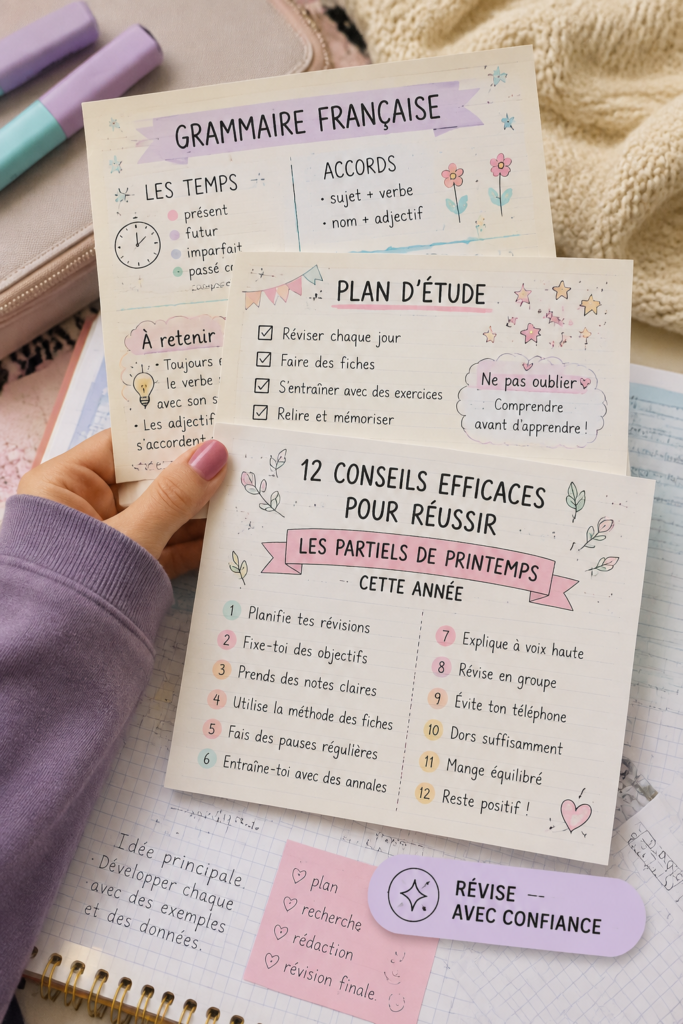 GRAMMAIRE FRANÇAISE
LES TEMPS
présent
futur
imparfait
passé
ACCORDS
• sujet + verbe
• nom + adjectif
À retenir
• Toujours
le verbe
avec son
• Les adjectif
s'accordent
PLAN D'ÉTUDE
Réviser chaque jour
Faire des fiches
S'entraîner avec des exercices
Relire et mémoriser
Ne pas oublier
Comprendre
avant d'apprendre !
12 CONSEILS EFFICACES
POUR RÉUSSIR
LES PARTIELS DE PRINTEMPS
CETTE ANNÉE
1 Planifie tes révisions
2 Fixe-toi des objectifs
3 Prends des notes claires
4 Utilise la méthode des fiches
5 Fais des pauses régulières
6 Entraîne-toi avec des annales
7 Explique à voix haute
8 Révise en groupe
9 Évite ton téléphone
10 Dors suffisamment
11 Mange équilibré
12 Reste positif !
Idée principale.
• Développer chaque
avec des exemples
et des données.
plan
recherche
rédaction
révision finale.
RÉVISE --
AVEC CONFIANCE